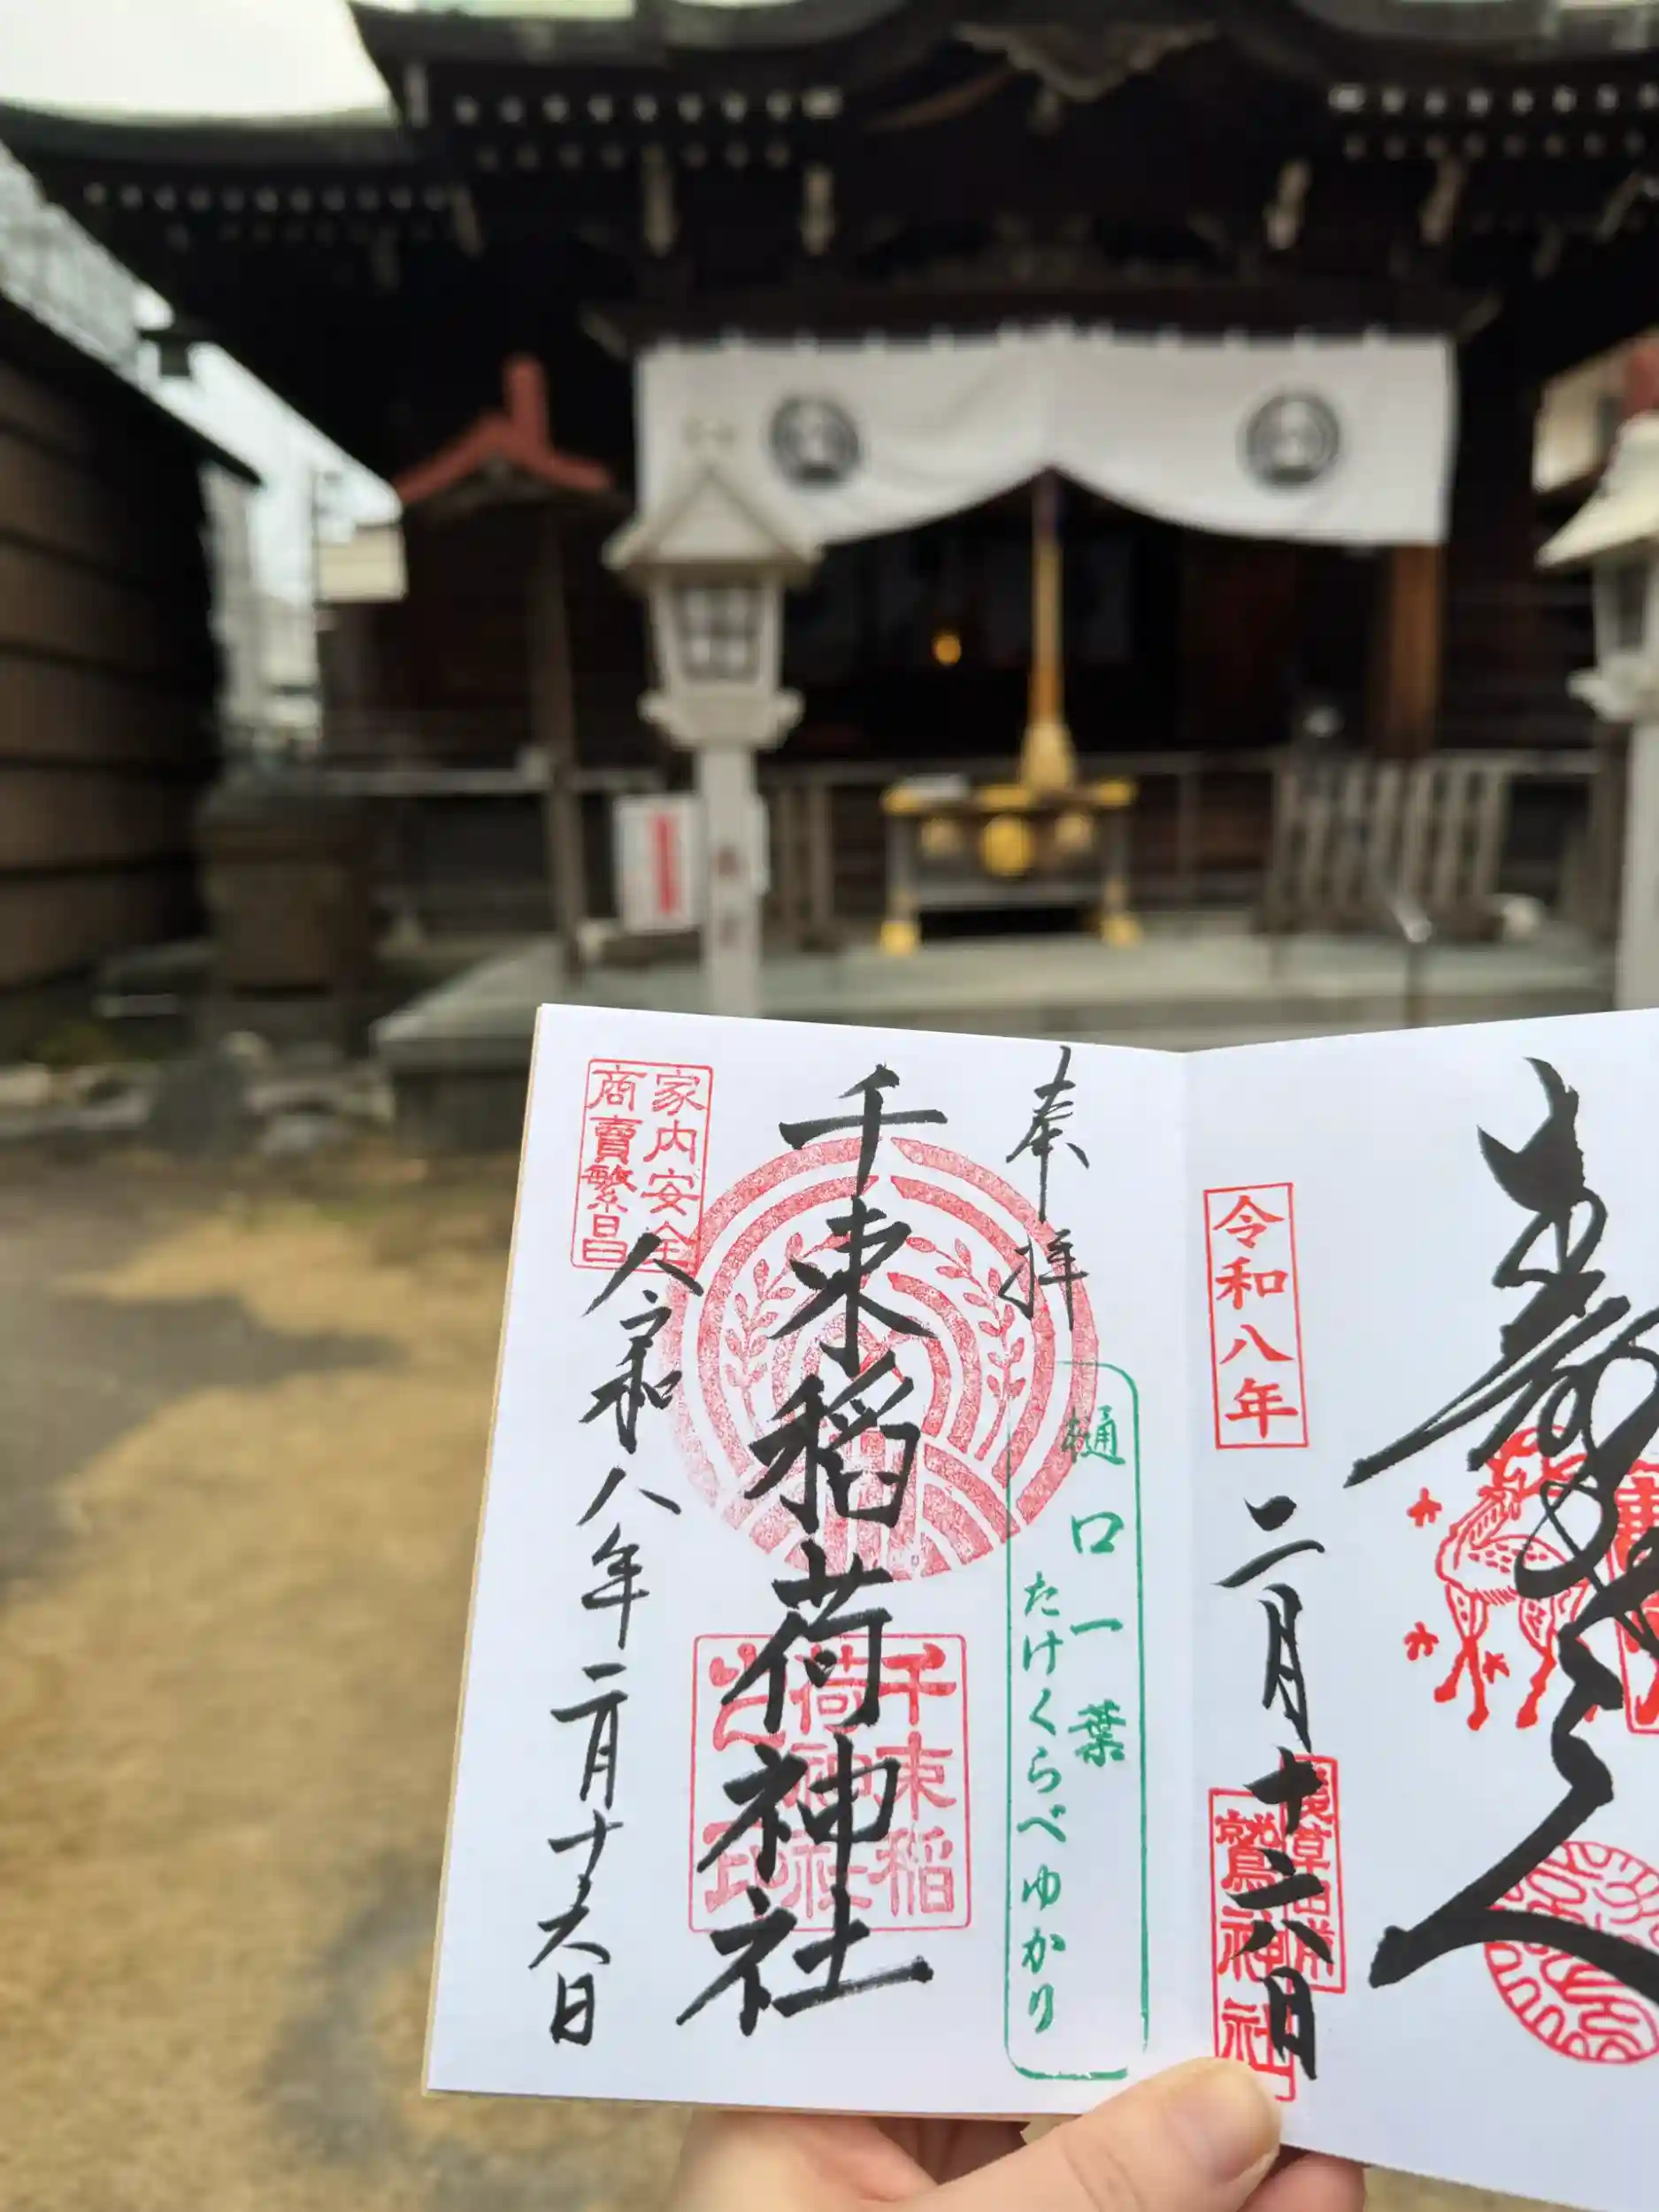 奉拝
千束稲荷神社
令和八年二月十六日
家内安全
商賣繁昌
樋口一葉
たけくらべゆかり
千束稲
荷神社
之印
令和八年
二月十六日
鷲神社